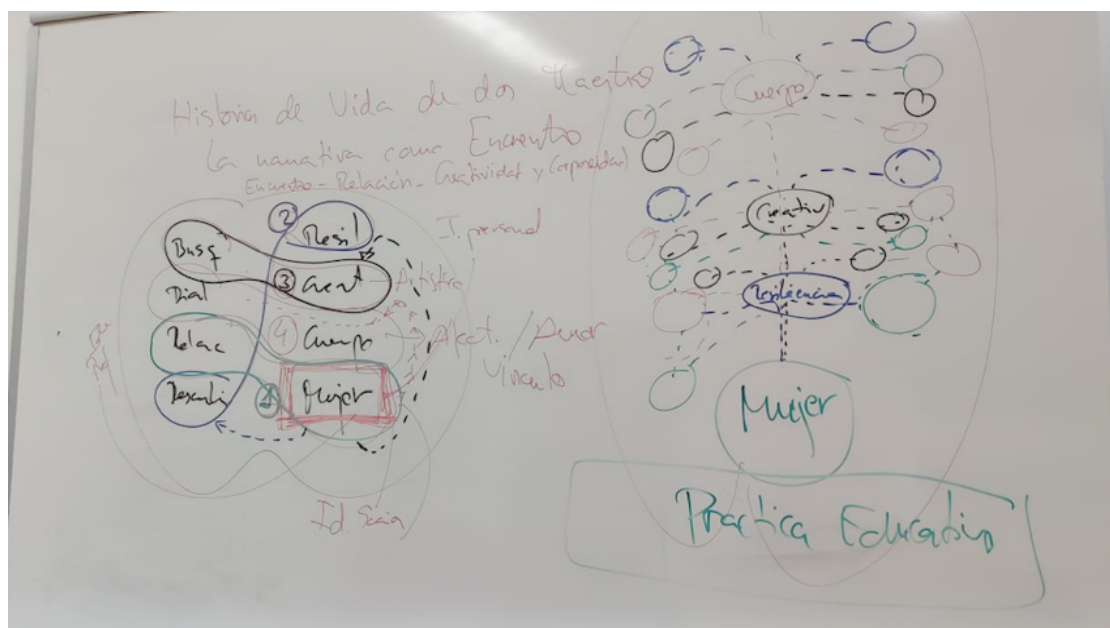 Historia de Vida de dos Maestro
La narrativa como Encuentro
Encuentro - Relación - Creatividad y Corporeidad
Busq
Dial
Relac
② Resil
③ Creat
④ Cuerpo
① Mujer
I. personal
Artistra
Vínculo
Cuerpo
Creativ
Resiliencia
Mujer
Practica Educativa